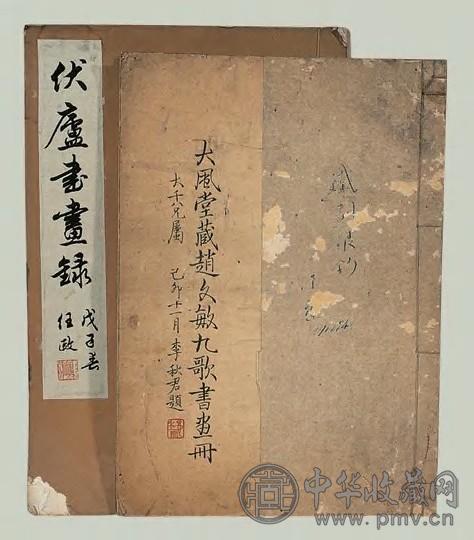 伏廬書畫錄
戊子春
任政
大風堂藏趙文敏九歌書畫冊
大千兄屬
己卯十一月李秋君題
中华收藏网
www.pmv.cn